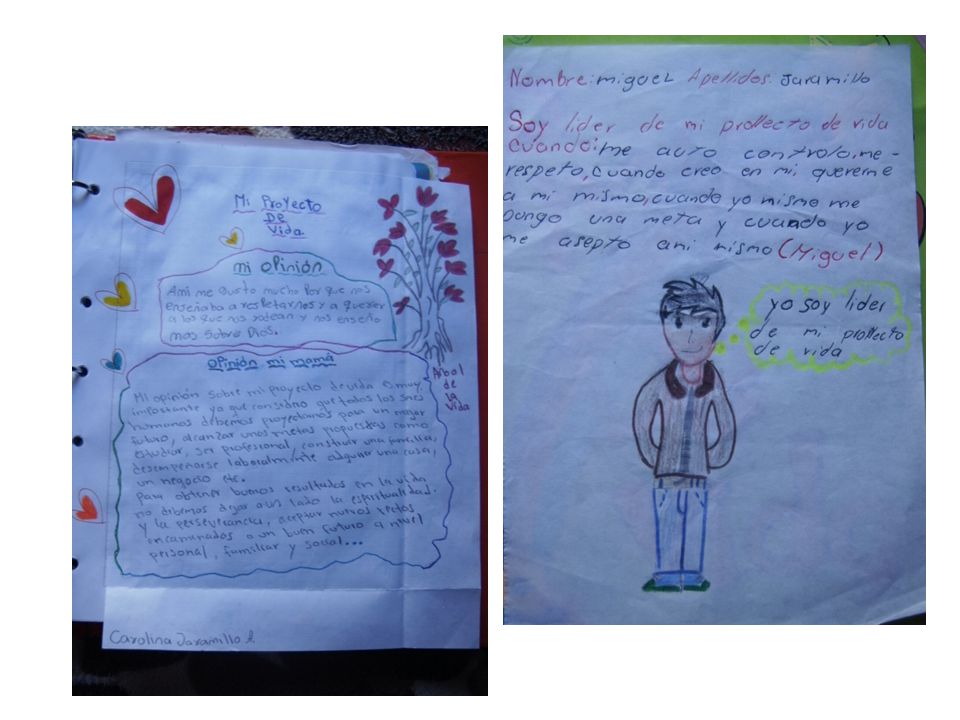 Mi Proyecto
De
Vida
mi opinión
Ami me gusto mucho Por que nos
enseñaba a respetarnos y a querer
a los que nos rodean y nos enseño
mas sobre Dios.
opinión mi mamá
Mi opinión sobre mi proyecto de vida es muy
importante ya que considero que todos los seres
humanos debemos proyectarnos para un mejor
futuro, alcanzar unas metas propuestas como
estudiar, ser profesional, construir una familia,
desempeñarse laboralmente alquirir una casa,
un negocio etc.
para obtener buenos resultados en la vida
no debemos dejar aun lado la espiritualidad.
y la perseverancia, aceptar nuevos retos
encaminados a un buen futuro a nivel
personal, familiar y social...
Arbol
de
la
Vida
Carolina Jaramillo
Nombre: miguel Apellidos: Jaramillo
Soy lider de mi prollecto de vida
cuando: me auto controlo, me-
respeto, cuando creo en mi, quereme
a mi mismo, cuando yo mismo me
pongo una meta y cuando yo
me asepto ami mismo (Miguel)
yo soy lider
de mi prollecto
de vida